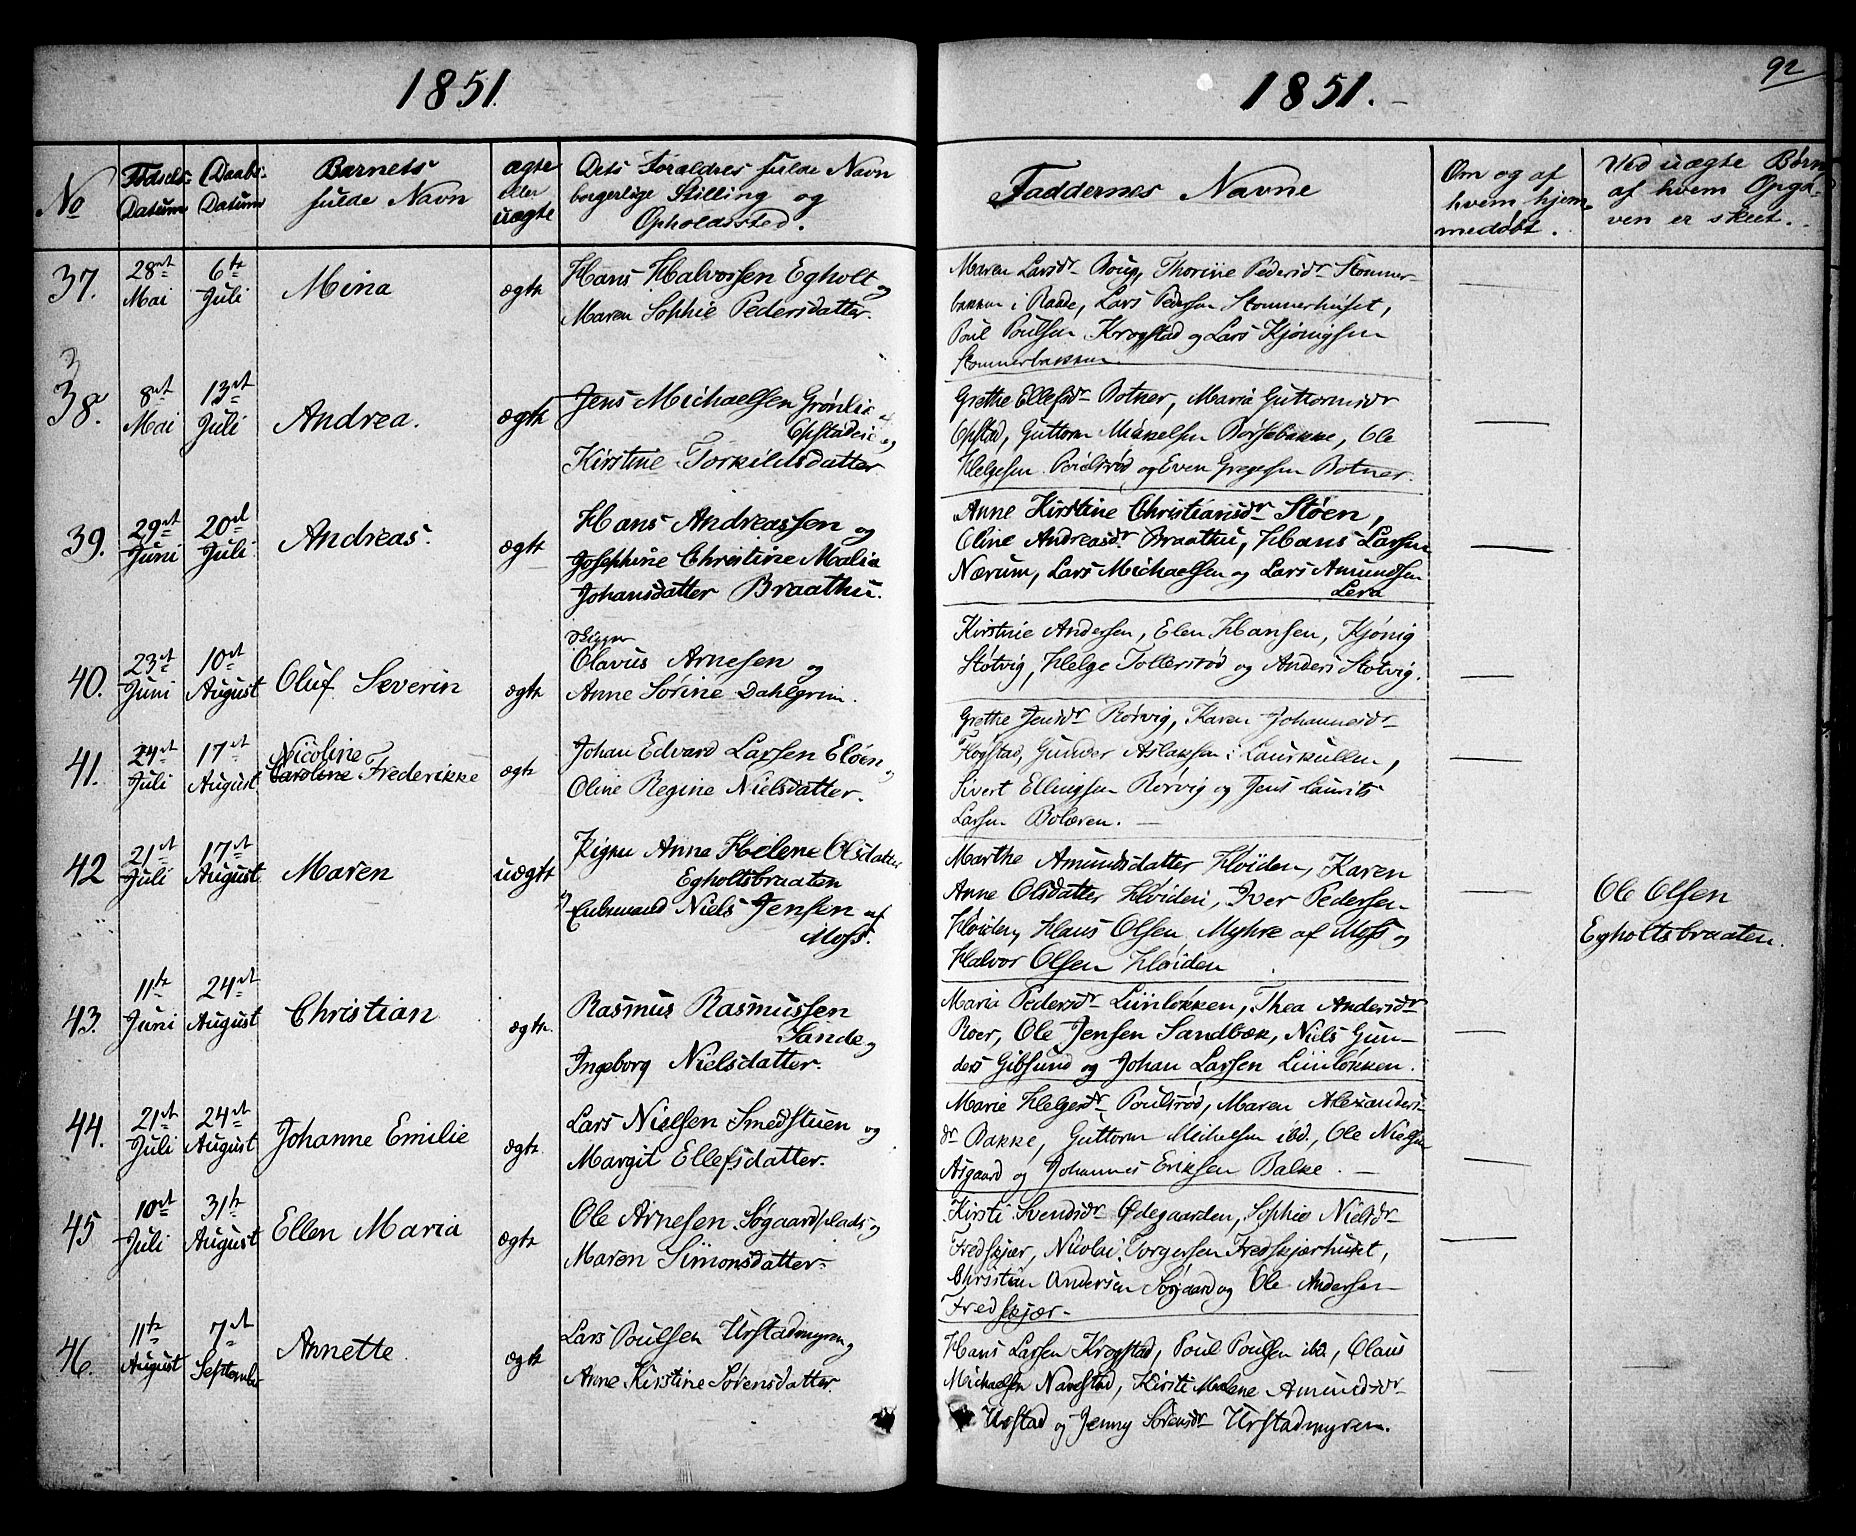 1851.
No
Fødsels-
Datum
Daabs-
Datum
Barnets
fulde Navn
ægte
eller
uægte
Dets Forældres fulde Navn
borgerlige Stilling og
Opholdssted.
37.
28de
Mai
6te
Juli
Mina
ægte
Hans Halvorsen Egholt og
Maren Sophie Pedersdatter.
38.
8de
Mai
13de
Juli
Andrea.
ægte
Jens Michaelsen Grønlie af
Opstadeie og
Kirstine Torkildsdatter
39.
29de
Juni
20de
Juli
Andreas.
ægte
Hans Andreassen og
Josephine Christine Malia
Johansdatter Braathu.
40.
23de
Juni
10de
August
Oluf Severin
ægte
Olavus Arnesen og
Anne Sørine Dahlgrim.
41.
24de
Juli
17de
August
Nicoline
Caroline Frederikke
ægte
Johan Edvard Larsen Eløen og
Oline Regine Nielsdatter.
42
21de
Juli
17de
August
Maren
uægte
Pigen Anne Helene Olsdatter
Egholtsbraaten
Enkemand Niels Jensen af
Moss.
43.
11te
Juni
24de
August
Christian
ægte.
Rasmus Rasmussen
Sande og
Ingeborg Nielsdatter.
44.
21de
Juli
24de
August
Johanne Emilie
ægte.
Lars Nielsen Smedstuen og
Margit Ellefsdatter.
45
10de
Juli
31te
August
Ellen Maria
ægte
Ole Arnesen Søgaardsplads og
Maren Simonsdatter.
46.
11te
August
7de
September
Annette
ægte
Lars Poulsen Urstadmyren og
Anne Kirstine Sørensdatter.
1851.
92
Faddernes Navne
Om og af
hvem hjem-
medøbt.
Ved uægte Børn
af hvem Opga-
ven er skeet.
Maren Larsdr Boup, Thorine Pedersdr Stommer-
bakken i Raade, Lars Pedersen Stommerhuset,
Poul Poulsen Krogstad og Lars Kjønigsen
Stommerbakken
Grethe Ellefsdr Botner, Maria Guttormsdr
Opstad, Guttorm Mikkelsen Borsebakke, Ole
Helgesen Poulsrød og Even Gregersen Botner.
Anne Kirstine Christiansdr Støen,
Oline Andreasdr Braathu, Hans Larsen
Nærum, Lars Michaelsen og Lars Amundsen
Lera
Kirstine Andersen, Elen Hansen, Kjønig
Støtvig, Helge Tollersrød og Anders Støtvig.
Grethe Jensdr Rørvig, Karen Johannesdr
Flogstad, Gunder Aslaksen i Laurkullen,
Sivert Ellingsen Rørvig og Jens Laurits
Larsen Bolæren.
Marthe Amundsdatter Høiden, Karen
Anne Olsdatter Høiden, Iver Pedersen
Høiden, Hans Olsen Myhre af Moss og
Halvor Olsen Høiden
Ole Olsen
Egholtsbraaten.
Maria Pedersdr Linløkken, Thea Andersdr
Roer, Ole Jensen Sandbæk, Niels Gun-
ders Gibsund og Johan Larsen Linløkken.
Marie Helgesdr Poulsrød, Maren Alexanders-
dr Bakke, Guttorm Michelsen ibd., Ole Nielsen
Asgaard og Johannes Eriksen Balke.
Kirsti Svendsdr Ødegaarden, Sophie Nielsdr
Fredskjær, Nicolai Torgersen Fredskjærhuset,
Christian Andersen Søgaard og Ole Andersen
Fredskjær.
Hans Larsen Krogstad, Poul Poulsen ibd., Olaus
Michaelsen Navestad, Kirsti Malene Amundsdr
Urstad og Jenny Sørensdr Urstadmyren.